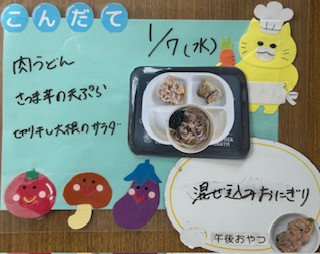 こんだて
1/7(水)
肉うどん
さつま芋の天ぷら
切り干し大根のサラダ
混ぜ込みおにぎり
午後おやつ